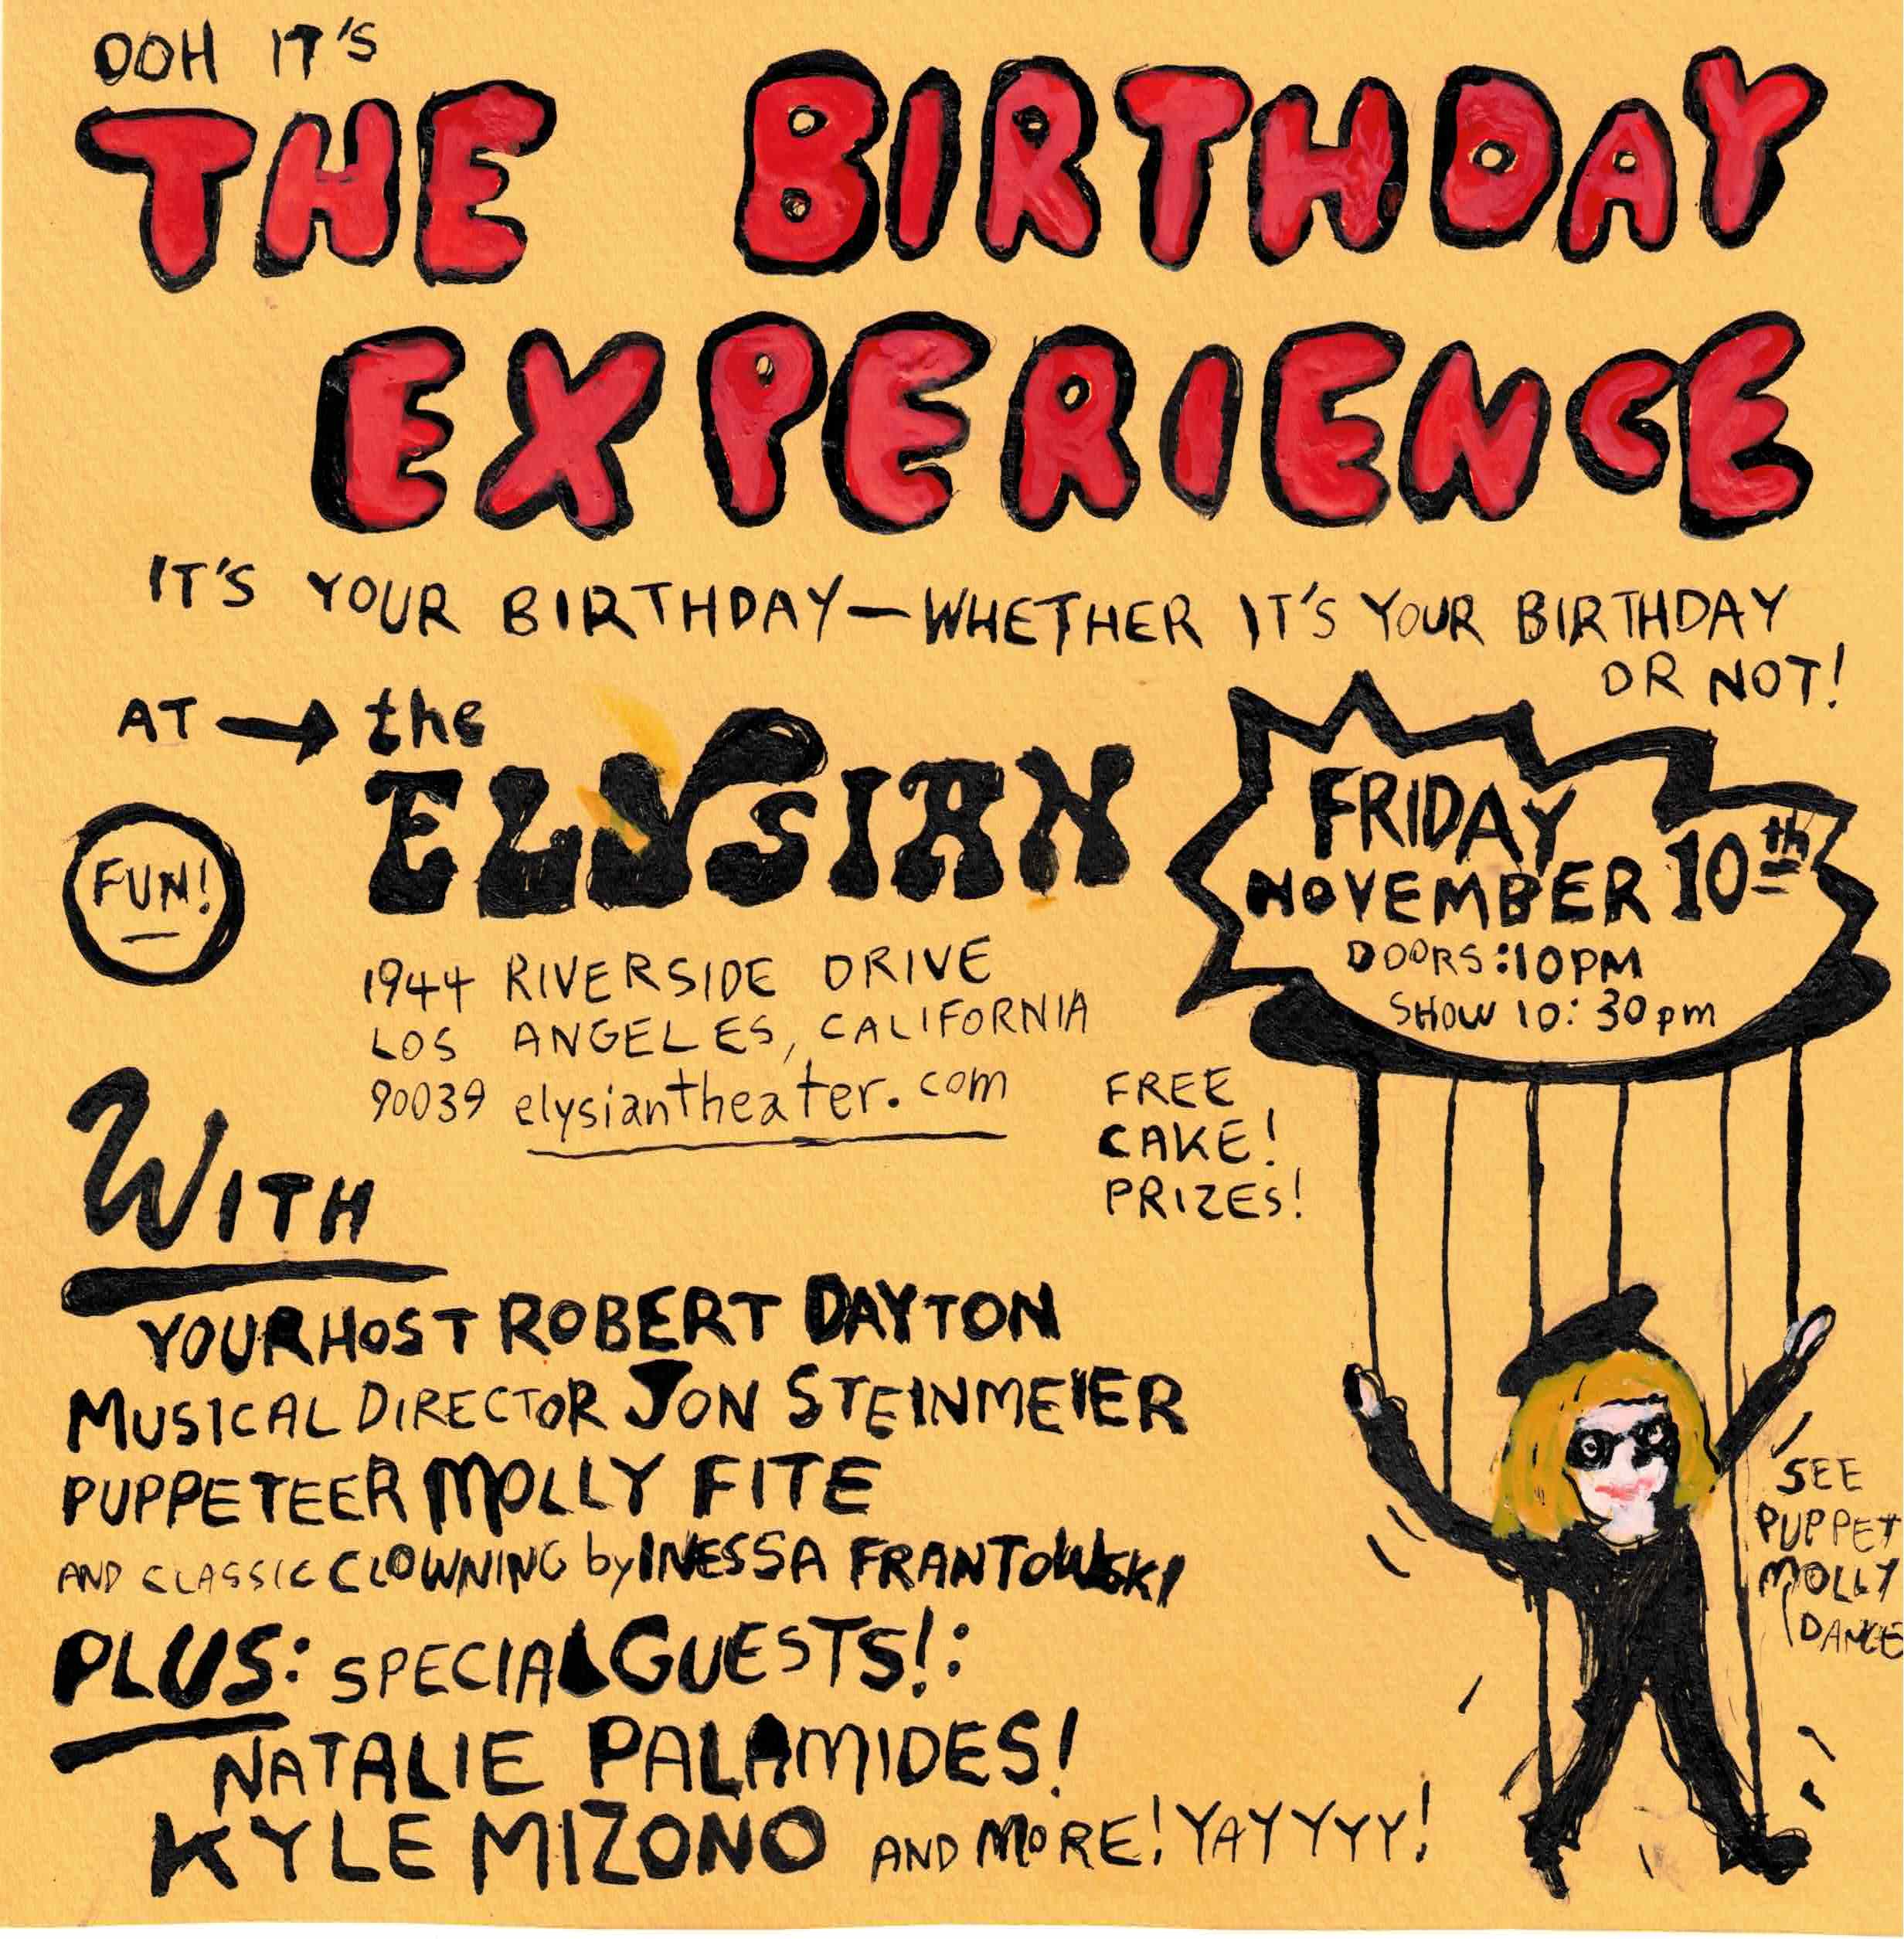 OOH IT'S
THE BIRTHDAY
EXPERIENCE
IT'S YOUR BIRTHDAY—WHETHER IT'S YOUR BIRTHDAY
OR NOT!
AT → the
ELYSIAN
FUN!
1944 RIVERSIDE DRIVE
LOS ANGELES, CALIFORNIA
90039 elysiantheater.com
FRIDAY
NOVEMBER 10th
DOORS:10PM
SHOW 10:30pm
FREE
CAKE!
PRIZES!
WITH
YOUR HOST ROBERT DAYTON
MUSICAL DIRECTOR JON STEINMEIER
PUPPETEER MOLLY FITE
AND CLASSIC CLOWNING by INESSA FRANTOWSKI
PLUS: SPECIAL GUESTS!:
NATALIE PALAMIDES!
KYLE MIZONO AND MORE! YAYYYYY!
SEE
PUPPET
MOLLY
DANCE